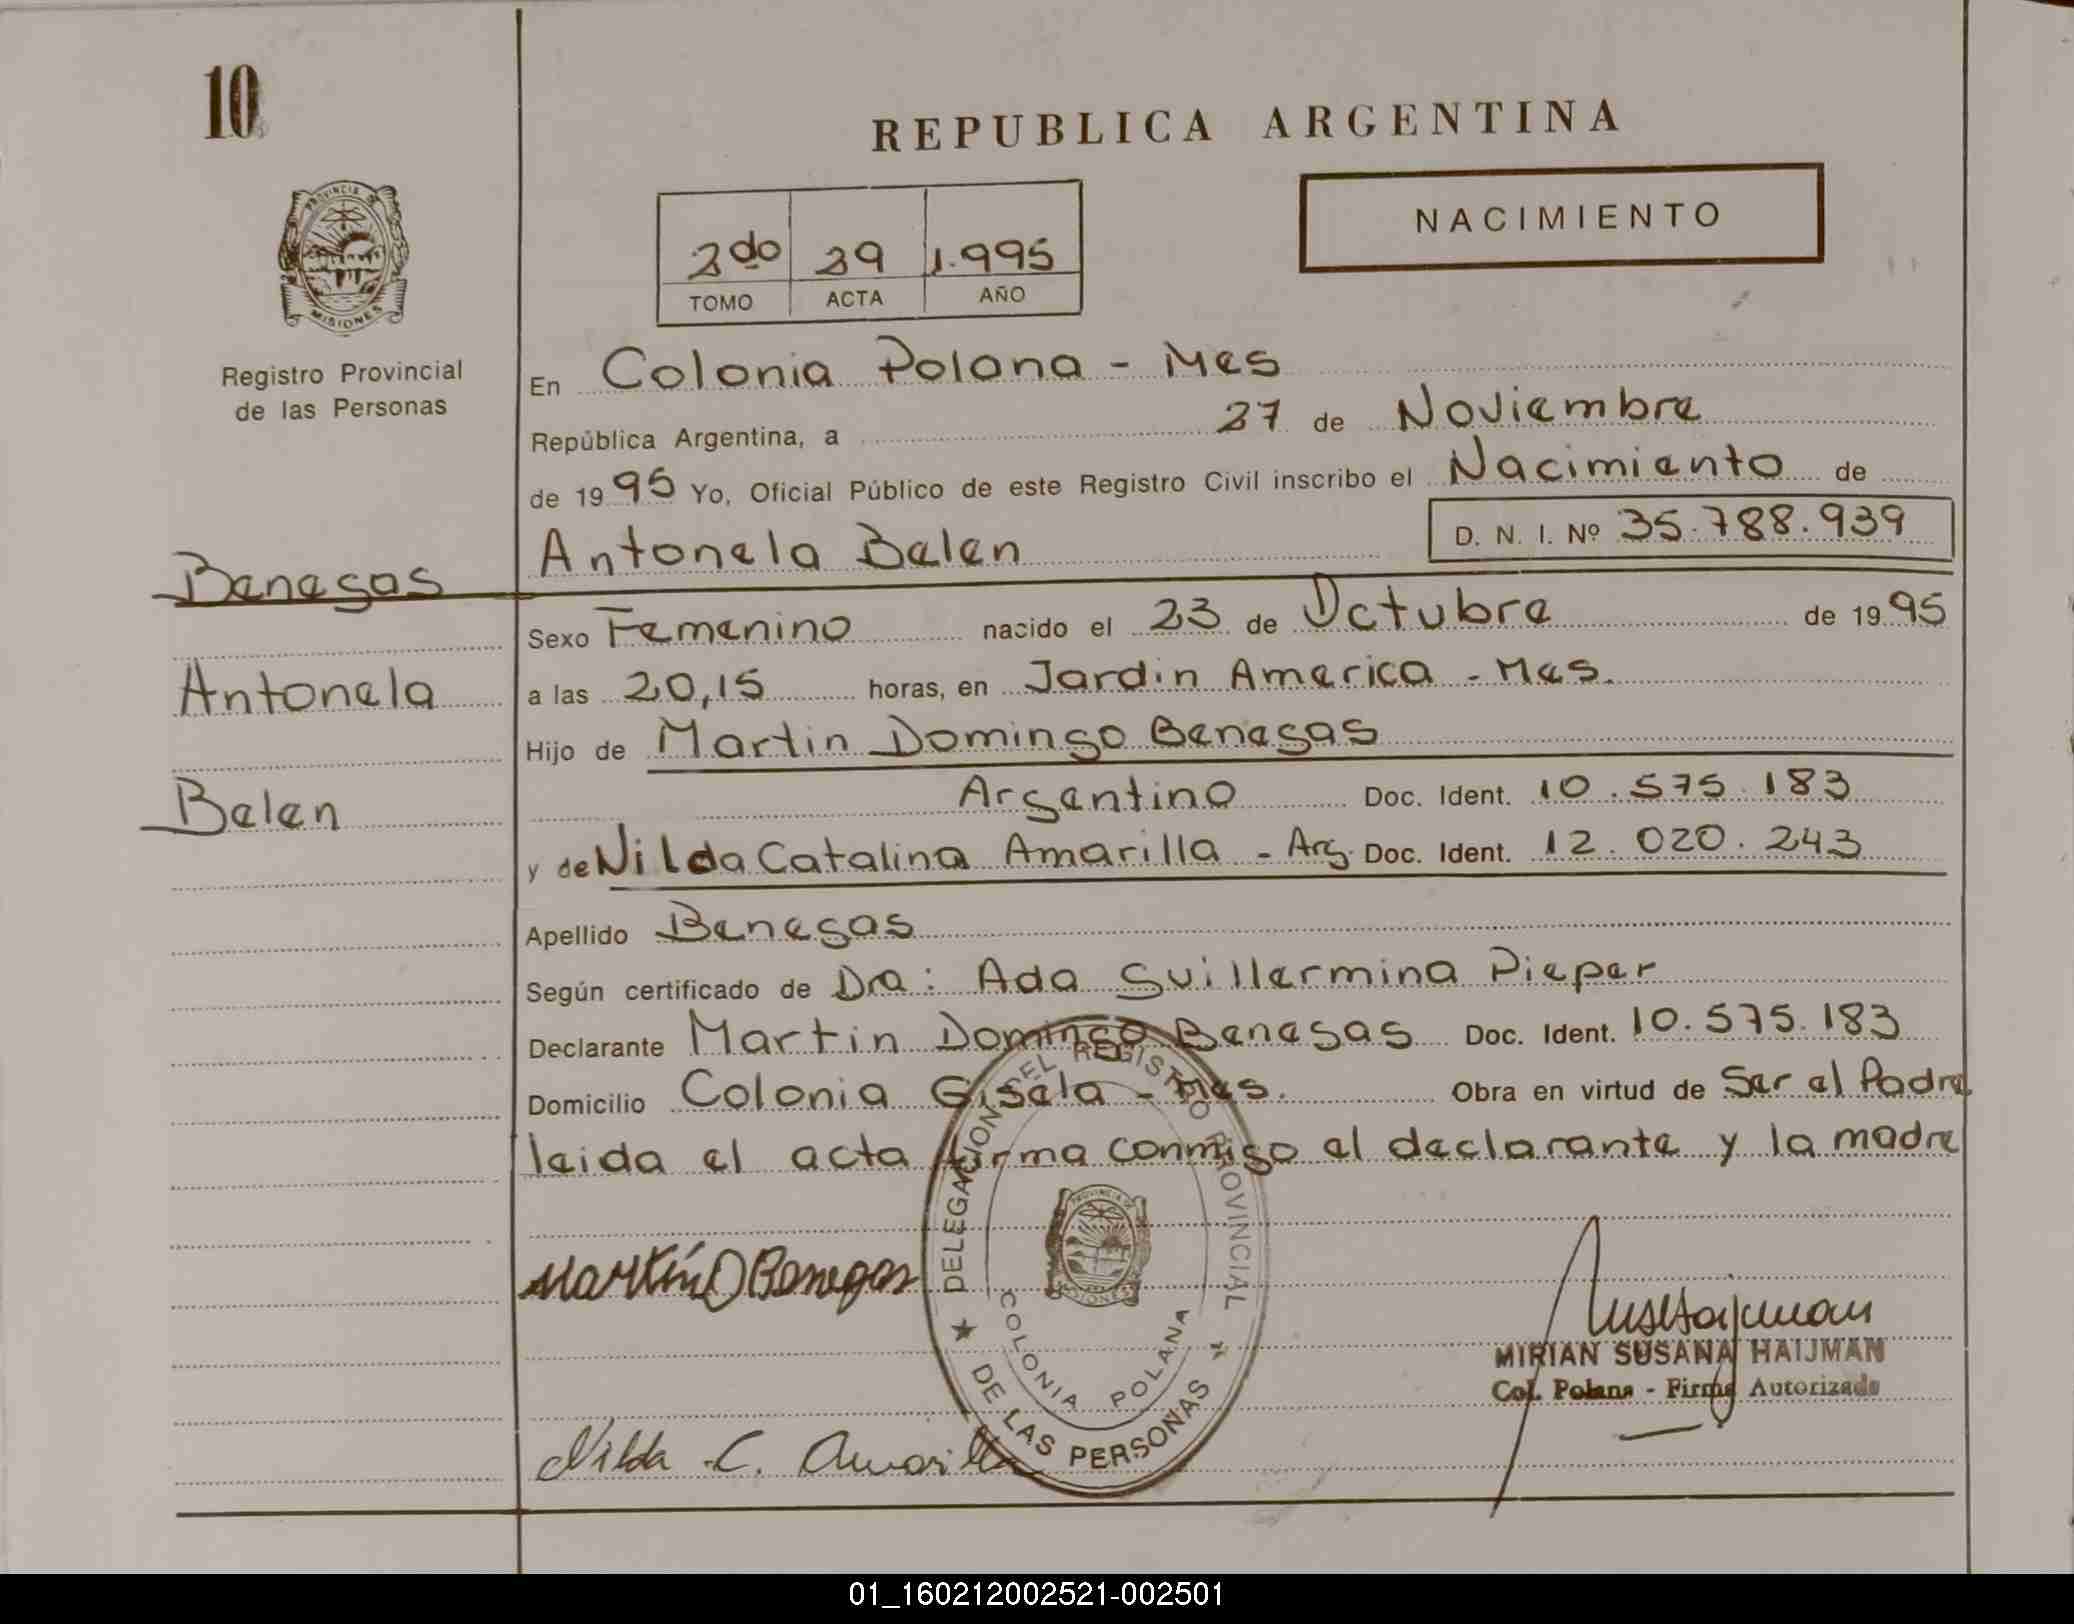 10
REPUBLICA ARGENTINA
NACIMIENTO
2do 29 1.995
TOMO ACTA AÑO
PROVINCIA DE
MISIONES
Registro Provincial
de las Personas
En Colonia Polana - Mes
República Argentina, a 27 de Noviembre
de 1995 Yo, Oficial Público de este Registro Civil inscribo el Nacimiento de
Antonela Belen D. N. I. Nº 35.788.939
Benegas
Sexo Femenino nacido el 23 de Octubre de 1995
Antonela
a las 20,15 horas, en Jardin America - Mes.
Hijo de Martin Domingo Benegas
Belen
Argentino Doc. Ident. 10.575.183
y de Nilda Catalina Amarilla - Arg. Doc. Ident. 12.020.243
Apellido Benegas
Según certificado de Dra: Ada Guillermina Pieper
Declarante Martin Domingo Benegas Doc. Ident. 10.575.183
Domicilio Colonia Gisela - Mes. Obra en virtud de Ser el Padre
leida el acta firma conmigo el declarante y la madre
DELEGACION DEL REGISTRO PROVINCIAL
DE LAS PERSONAS
COLONIA POLANA
PROVINCIA DE
MISIONES
Martín D Benegas
MIRIAN SUSANA HAIJMAN
Col. Polana - Firma Autorizada
Nilda C. Amarilla
01_160212002521-002501